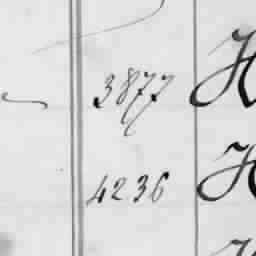 3877 H
4236 H